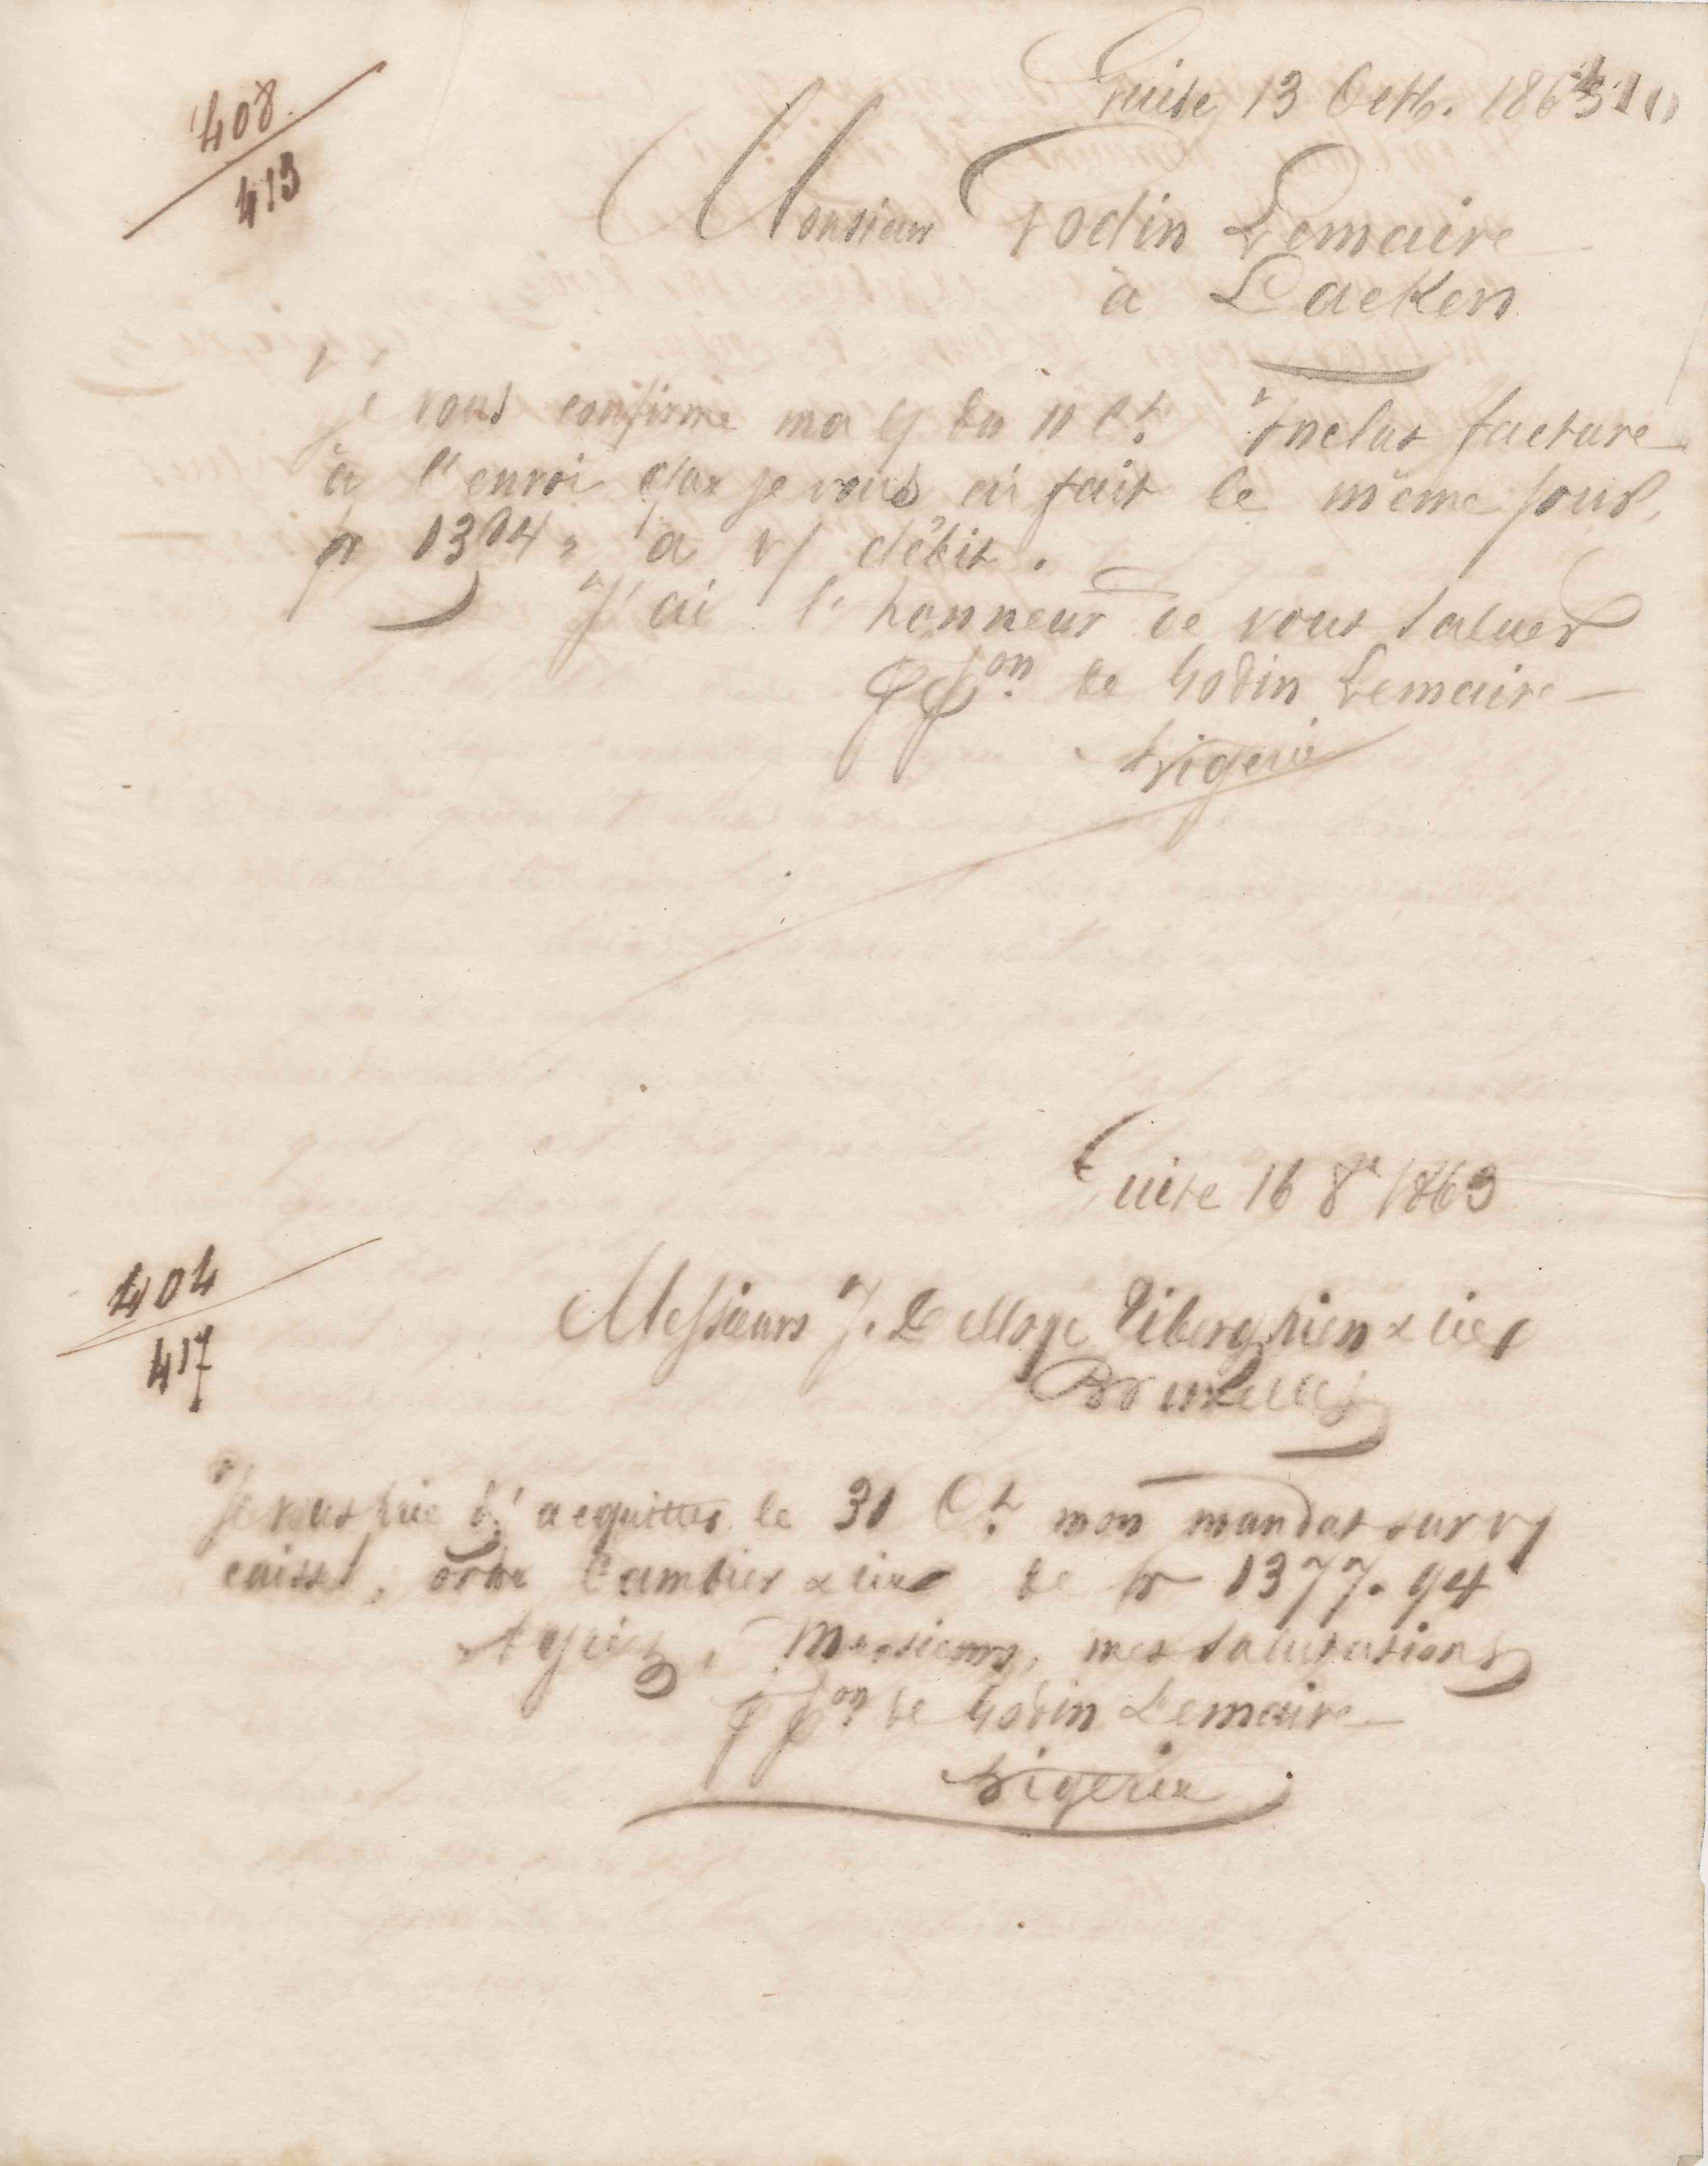 Guise 13 Octb. 1863
408
413
Monsieur Godin Lemaire
à Laeken
Je vous confirme ma l/ du 11 Ct. Inclus facture
à l'envoi que je vous ai fait le même jour,
fr 1314 " à v/ débit.
J'ai l'honneur de vous saluer
ppon. de Godin Lemaire
Guise 16 8e 1863
404
417
Messieurs J. Delloye Tiberghien & Cie
Bruxelles
Je vous prie d'acquitter le 31 Ct. mon mandat sur v/
caisse, ordre Cambier & Cie de fr 1377.94
Agréez, Messieurs, mes salutations
ppon de Godin Lemaire